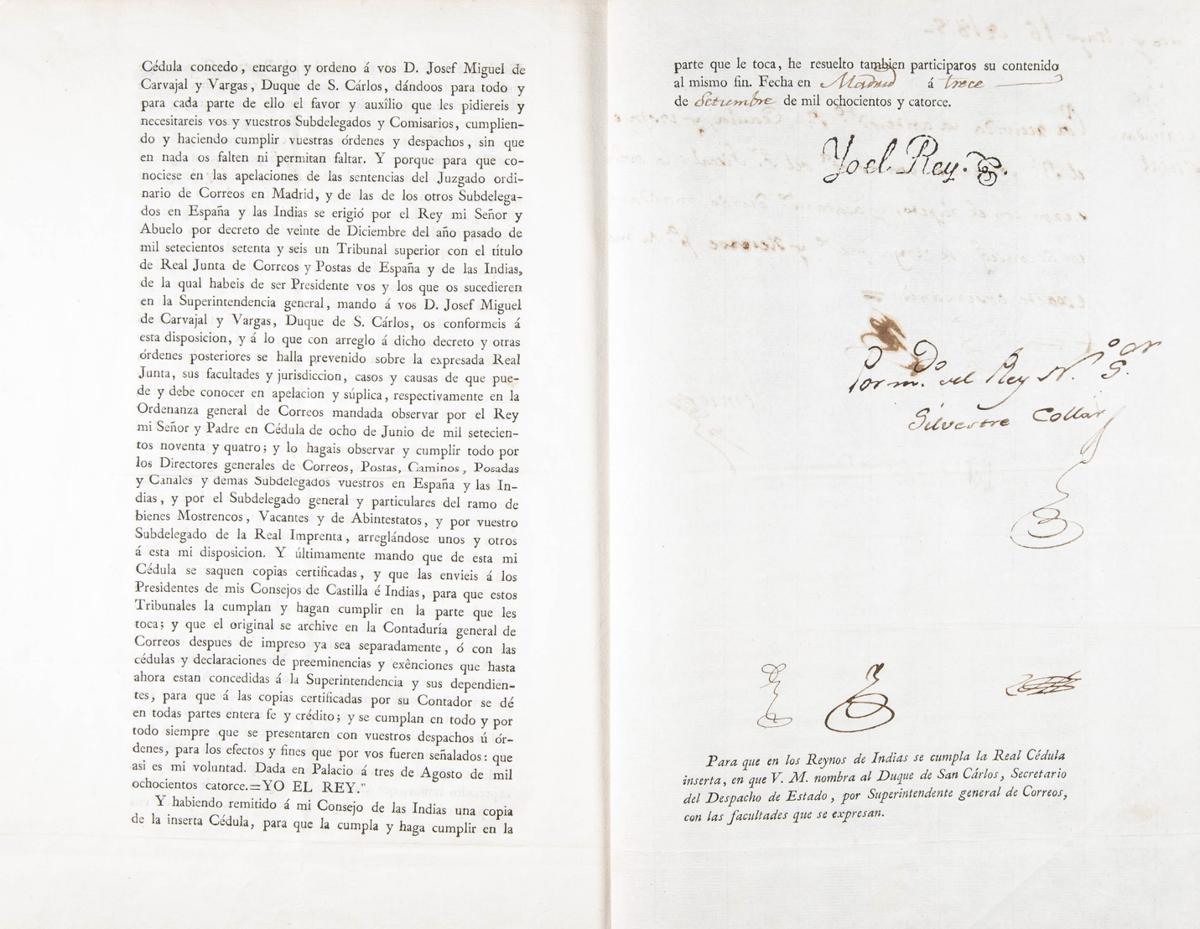 Cédula concedo, encargo y ordeno á vos D. Josef Miguel de
Carvajal y Vargas, Duque de S. Cárlos, dándoos para todo y
para cada parte de ello el favor y auxîlio que les pidiereis y
necesitareis vos y vuestros Subdelegados y Comisarios, cumplien-
do y haciendo cumplir vuestras órdenes y despachos, sin que
en nada os falten ni permitan faltar. Y porque para que co-
nociese en las apelaciones de las sentencias del Juzgado ordi-
nario de Correos en Madrid, y de las de los otros Subdelega-
dos en España y las Indias se erigió por el Rey mi Señor y
Abuelo por decreto de veinte de Diciembre del año pasado de
mil setecientos setenta y seis un Tribunal superior con el título
de Real Junta de Correos y Postas de España y de las Indias,
de la qual habeis de ser Presidente vos y los que os sucedieren
en la Superintendencia general, mando á vos D. Josef Miguel
de Carvajal y Vargas, Duque de S. Cárlos, os conformeis á
esta disposicion, y á lo que con arreglo á dicho decreto y otras
órdenes posteriores se halla prevenido sobre la expresada Real
Junta, sus facultades y jurisdiccion, casos y causas de que pue-
de y debe conocer en apelacion y súplica, respectivamente en la
Ordenanza general de Correos mandada observar por el Rey
mi Señor y Padre en Cédula de ocho de Junio de mil setecien-
tos noventa y quatro; y lo hagais observar y cumplir todo por
los Directores generales de Correos, Postas, Caminos, Posadas
y Canales y demas Subdelegados vuestros en España y las In-
dias, y por el Subdelegado general y particulares del ramo de
bienes Mostrencos, Vacantes y de Abintestatos, y por vuestro
Subdelegado de la Real Imprenta, arreglándose unos y otros
á esta mi disposicion. Y últimamente mando que de esta mi
Cédula se saquen copias certificadas, y que las envieis á los
Presidentes de mis Consejos de Castilla é Indias, para que estos
Tribunales la cumplan y hagan cumplir en la parte que les
toca; y que el original se archive en la Contaduría general de
Correos despues de impreso ya sea separadamente, ó con las
cédulas y declaraciones de preeminencias y exênciones que hasta
ahora estan concedidas á la Superintendencia y sus dependien-
tes, para que á las copias certificadas por su Contador se dé
en todas partes entera fe y crédito; y se cumplan en todo y por
todo siempre que se presentaren con vuestros despachos ú ór-
denes, para los efectos y fines que por vos fueren señalados: que
asi es mi voluntad. Dada en Palacio á tres de Agosto de mil
ochocientos catorce.=YO EL REY."
Y habiendo remitido á mi Consejo de las Indias una copia
de la inserta Cédula, para que la cumpla y haga cumplir en la
parte que le toca, he resuelto tambien participaros su contenido
al mismo fin. Fecha en Madrid á trece
de Setiembre de mil ochocientos y catorce.
Yo el Rey.
Por m.do del Rey N.o S.or
Silvestre Collar
Para que en los Reynos de Indias se cumpla la Real Cédula
inserta, en que V. M. nombra al Duque de San Cárlos, Secretario
del Despacho de Estado, por Superintendente general de Correos,
con las facultades que se expresan.